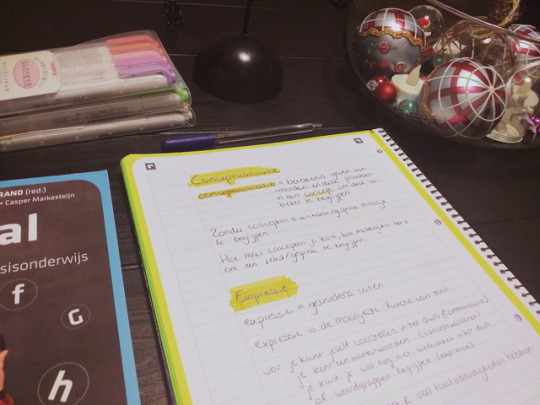 RAND (red.)
Casper Markesteijn
al
sisonderwijs
f
G
h
Conceptualisatie
conceptualisatie = betekenis geven aan
woorden en deze plaatsen
in een concept om deze
beter te begrijpen
Zonder concepten is een tekst/gesprek moeilijk
te begrijpen.
Hoe meer concepten je kent, hoe makkelijker het is
om een tekst/gesprek te begrijpen
Expressie
expressie = gevoelens uiten
expressie is de moeilijkste functie van taal
vb: je kunt jezelf voorstellen in het duits (communicatie)
je kent een aantal woorden (conceptualiseren)
je kunt je nog niet uitdrukken in het duits
of woordgrappen begrijpen (expressie)
je veel taalvaardigheden hebben